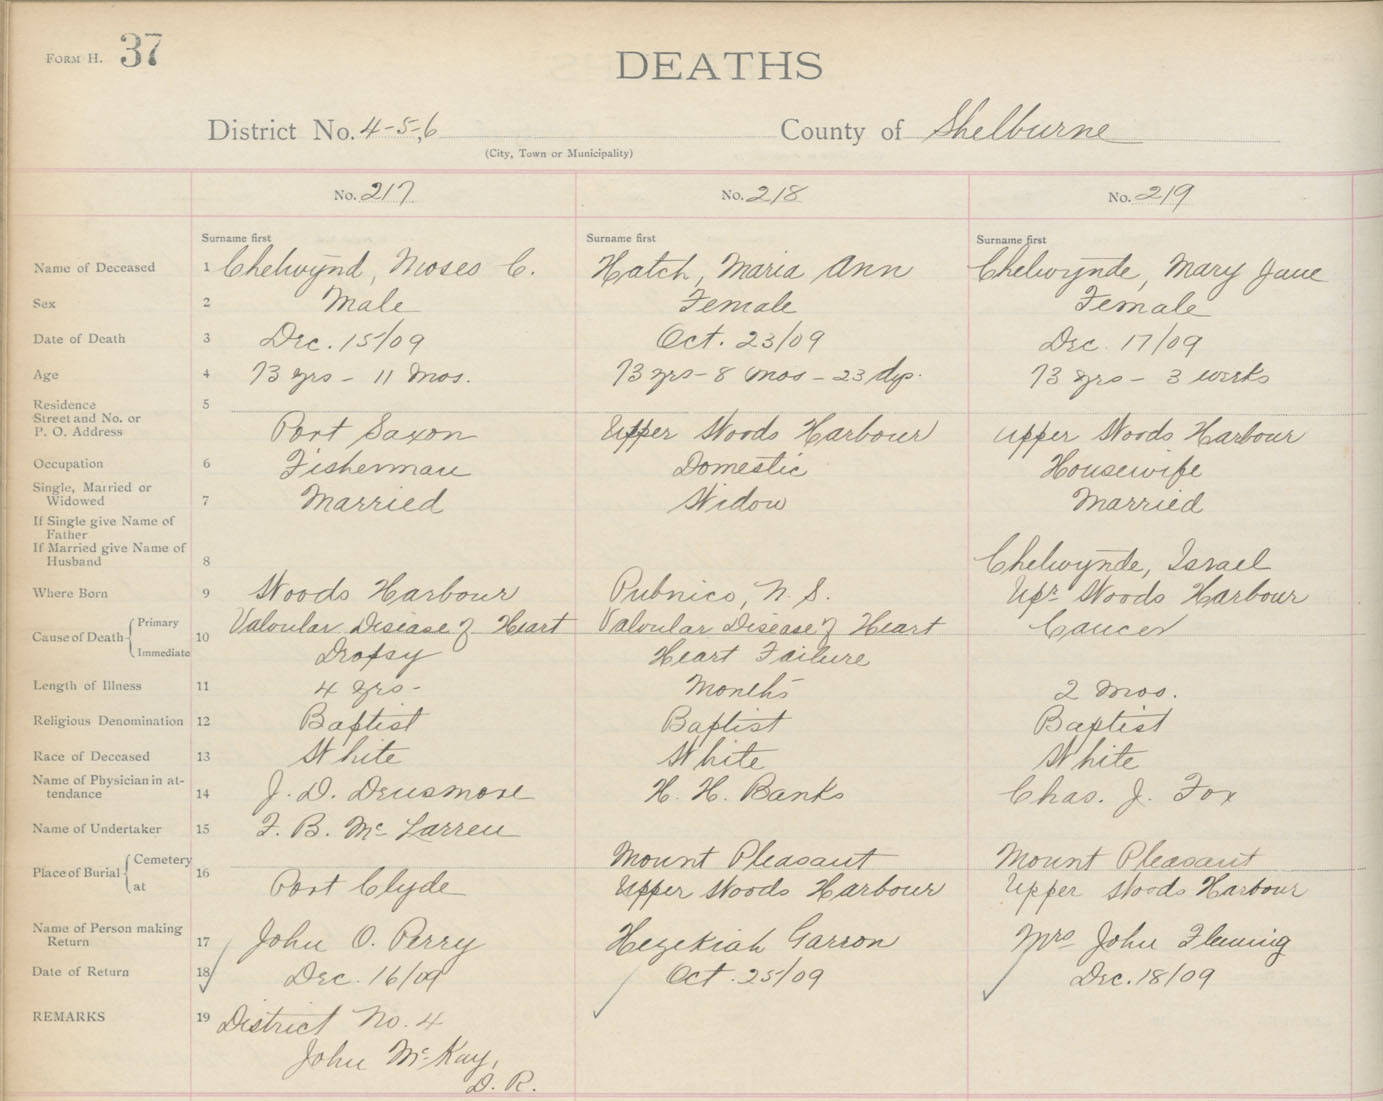 FORM H. 37
DEATHS
District No. 4-5-,6 County of Shelburne
(City, Town or Municipality)
No. 217 No. 218 No. 219
Surname first Surname first Surname first
Name of Deceased 1 Chelwynd, Moses C. Hatch, Maria Ann Chelwynde, Mary Jane
Sex 2 Male Female Female
Date of Death 3 Dec. 15/09 Oct. 23/09 Dec. 17/09
Age 4 73 yrs - 11 mos. 73 yrs - 8 mos - 23 dys. 73 yrs - 3 weeks
Residence 5
Street and No. or
P. O. Address Port Saxon Upper Woods Harbour Upper Woods Harbour
Occupation 6 Fisherman Domestic Housewife
Single, Married or
Widowed 7 Married Widow Married
If Single give Name of
Father
If Married give Name of
Husband 8 Chelwynde, Israel
Where Born 9 Woods Harbour Pubnico, N. S. Upr Woods Harbour
Cause of Death 10 Primary Valvular Disease of Heart Valvular Disease of Heart Cancer
Immediate Dropsy Heart Failure
Length of Illness 11 4 yrs - Months 2 mos.
Religious Denomination 12 Baptist Baptist Baptist
Race of Deceased 13 White White White
Name of Physician in at-
tendance 14 J. D. Densmore H. H. Banks Chas. J. Fox
Name of Undertaker 15 F. B. McLarren
Place of Burial 16 Cemetery Mount Pleasant Mount Pleasant
at Port Clyde Upper Woods Harbour Upper Woods Harbour
Name of Person making
Return 17 John O. Perry Hezekiah Garron Mrs John Fleming
Date of Return 18 Dec. 16/09 Oct. 25/09 Dec. 18/09
REMARKS 19 District No. 4
John McKay,
D. R.